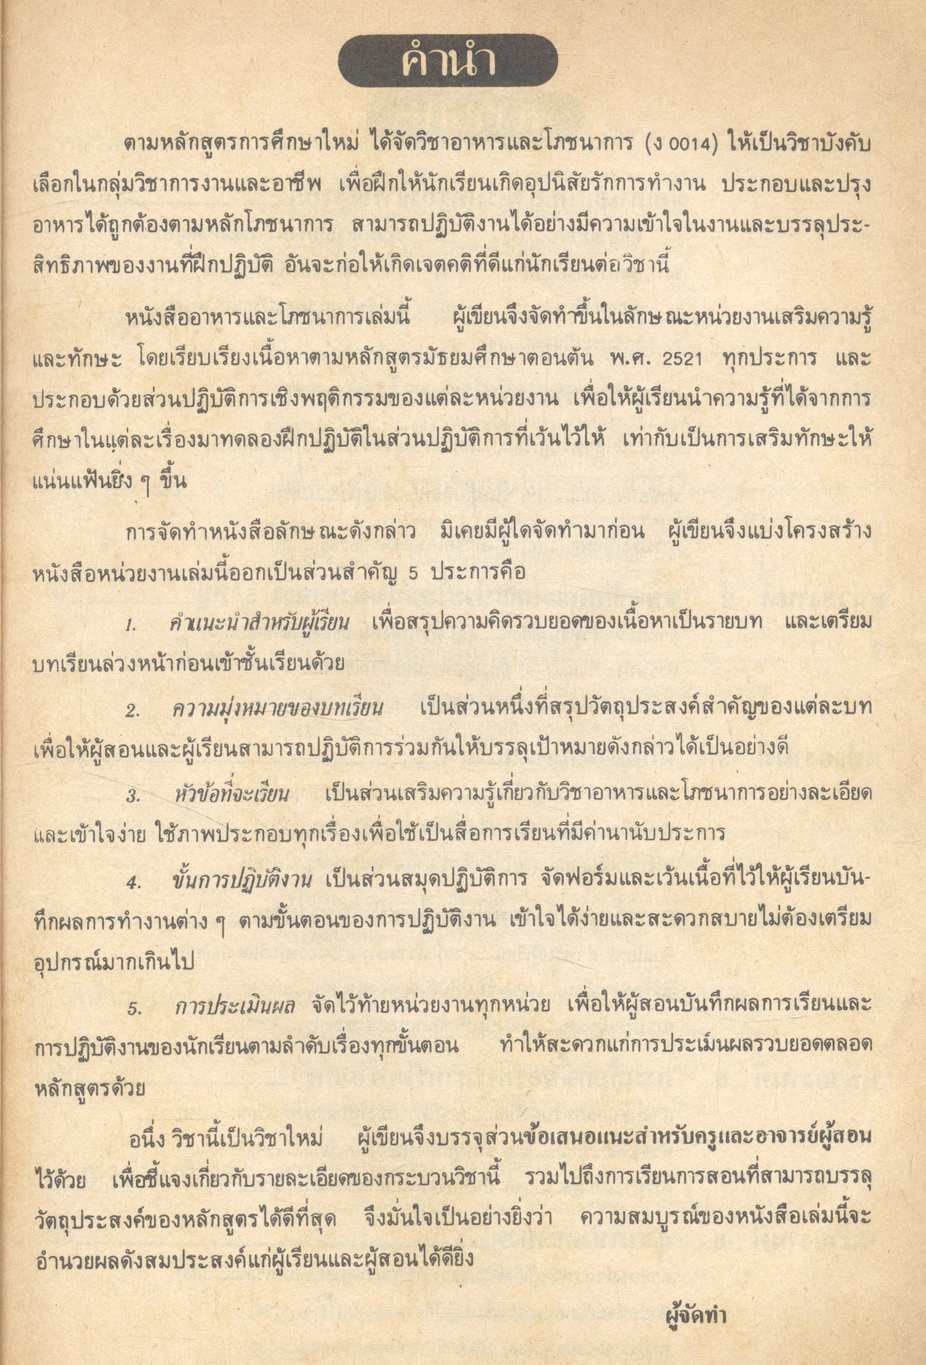 คำนำ
ตามหลักสูตรการศึกษาใหม่ ได้จัดวิชาอาหารและโภชนาการ (ง 0014) ให้เป็นวิชาบังคับ
เลือกในกลุ่มวิชาการงานและอาชีพ เพื่อฝึกให้นักเรียนเกิดอุปนิสัยรักการทำงาน ประกอบและปรุง
อาหารได้ถูกต้องตามหลักโภชนาการ สามารถปฏิบัติงานได้อย่างมีความเข้าใจในงานและบรรลุประ-
สิทธิภาพของงานที่ฝึกปฏิบัติ อันจะก่อให้เกิดเจตคติที่ดีแก่นักเรียนต่อวิชานี้
หนังสืออาหารและโภชนาการเล่มนี้ ผู้เขียนจึงจัดทำขึ้นในลักษณะหน่วยงานเสริมความรู้
และทักษะ โดยเรียบเรียงเนื้อหาตามหลักสูตรมัธยมศึกษาตอนต้น พ.ศ. 2521 ทุกประการ และ
ประกอบด้วยส่วนปฏิบัติการเชิงพฤติกรรมของแต่ละหน่วยงาน เพื่อให้ผู้เรียนนำความรู้ที่ได้จากการ
ศึกษาในแต่ละเรื่องมาทดลองฝึกปฏิบัติในส่วนปฏิบัติการที่เว้นไว้ให้ เท่ากับเป็นการเสริมทักษะให้
แน่นแฟ้นยิ่ง ๆ ขึ้น
การจัดทำหนังสือลักษณะดังกล่าว มิเคยมีผู้ใดจัดทำมาก่อน ผู้เขียนจึงแบ่งโครงสร้าง
หนังสือหน่วยงานเล่มนี้ออกเป็นส่วนสำคัญ 5 ประการคือ
1. คำแนะนำสำหรับผู้เรียน เพื่อสรุปความคิดรวบยอดของเนื้อหาเป็นรายบท และเตรียม
บทเรียนล่วงหน้าก่อนเข้าชั้นเรียนด้วย
2. ความมุ่งหมายของบทเรียน เป็นส่วนหนึ่งที่สรุปวัตถุประสงค์สำคัญของแต่ละบท
เพื่อให้ผู้สอนและผู้เรียนสามารถปฏิบัติการร่วมกันให้บรรลุเป้าหมายดังกล่าวได้เป็นอย่างดี
3. หัวข้อที่จะเรียน เป็นส่วนเสริมความรู้เกี่ยวกับวิชาอาหารและโภชนาการอย่างละเอียด
และเข้าใจง่าย ใช้ภาพประกอบทุกเรื่องเพื่อใช้เป็นสื่อการเรียนที่มีค่านานับประการ
4. ขั้นการปฏิบัติงาน เป็นส่วนสมุดปฏิบัติการ จัดฟอร์มและเว้นเนื้อที่ไว้ให้ผู้เรียนบัน-
ทึกผลการทำงานต่าง ๆ ตามขั้นตอนของการปฏิบัติงาน เข้าใจได้ง่ายและสะดวกสบายไม่ต้องเตรียม
อุปกรณ์มากเกินไป
5. การประเมินผล จัดไว้ท้ายหน่วยงานทุกหน่วย เพื่อให้ผู้สอนบันทึกผลการเรียนและ
การปฏิบัติงานของนักเรียนตามลำดับเรื่องทุกขั้นตอน ทำให้สะดวกแก่การประเมินผลรวบยอดตลอด
หลักสูตรด้วย
อนึ่ง วิชานี้เป็นวิชาใหม่ ผู้เขียนจึงบรรจุส่วนข้อเสนอแนะสำหรับครูและอาจารย์ผู้สอน
ไว้ด้วย เพื่อชี้แจงเกี่ยวกับรายละเอียดของกระบวนวิชานี้ รวมไปถึงการเรียนการสอนที่สามารถบรรลุ
วัตถุประสงค์ของหลักสูตรได้ดีที่สุด จึงมั่นใจเป็นอย่างยิ่งว่า ความสมบูรณ์ของหนังสือเล่มนี้จะ
อำนวยผลดังสมประสงค์แก่ผู้เรียนและผู้สอนได้ดียิ่ง
ผู้จัดทำ